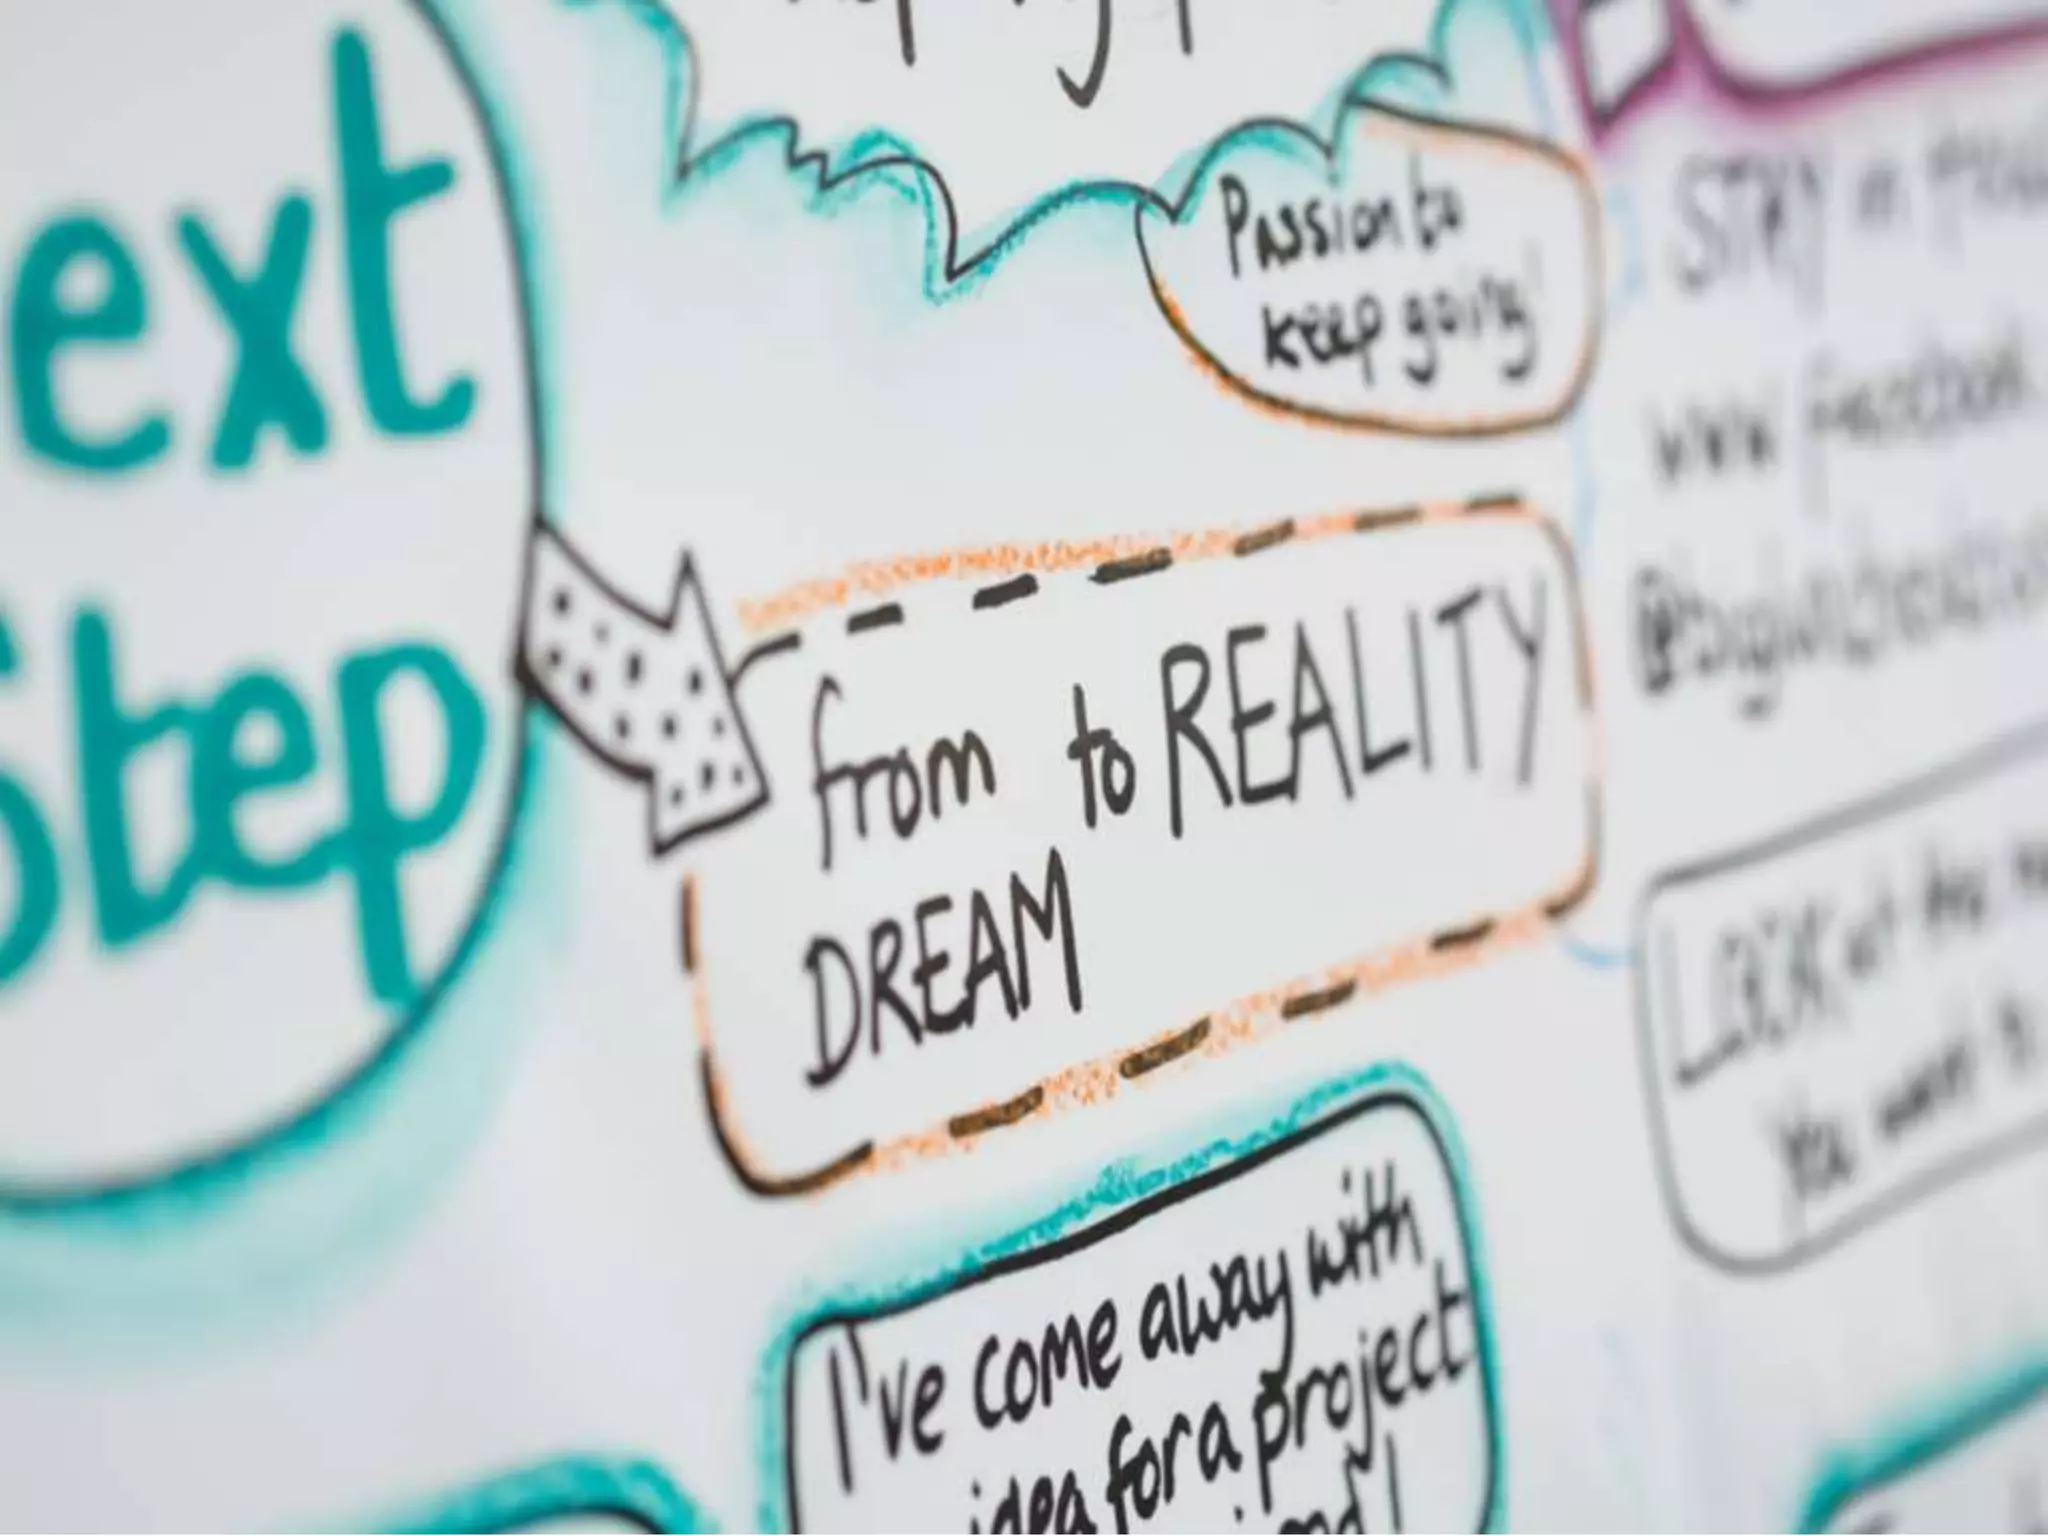 ext
Step
Passion to
keep going
from to REALITY
DREAM
I've come away with
idea for a project
STAY in
www.facebook.
LOOK at the
You want it